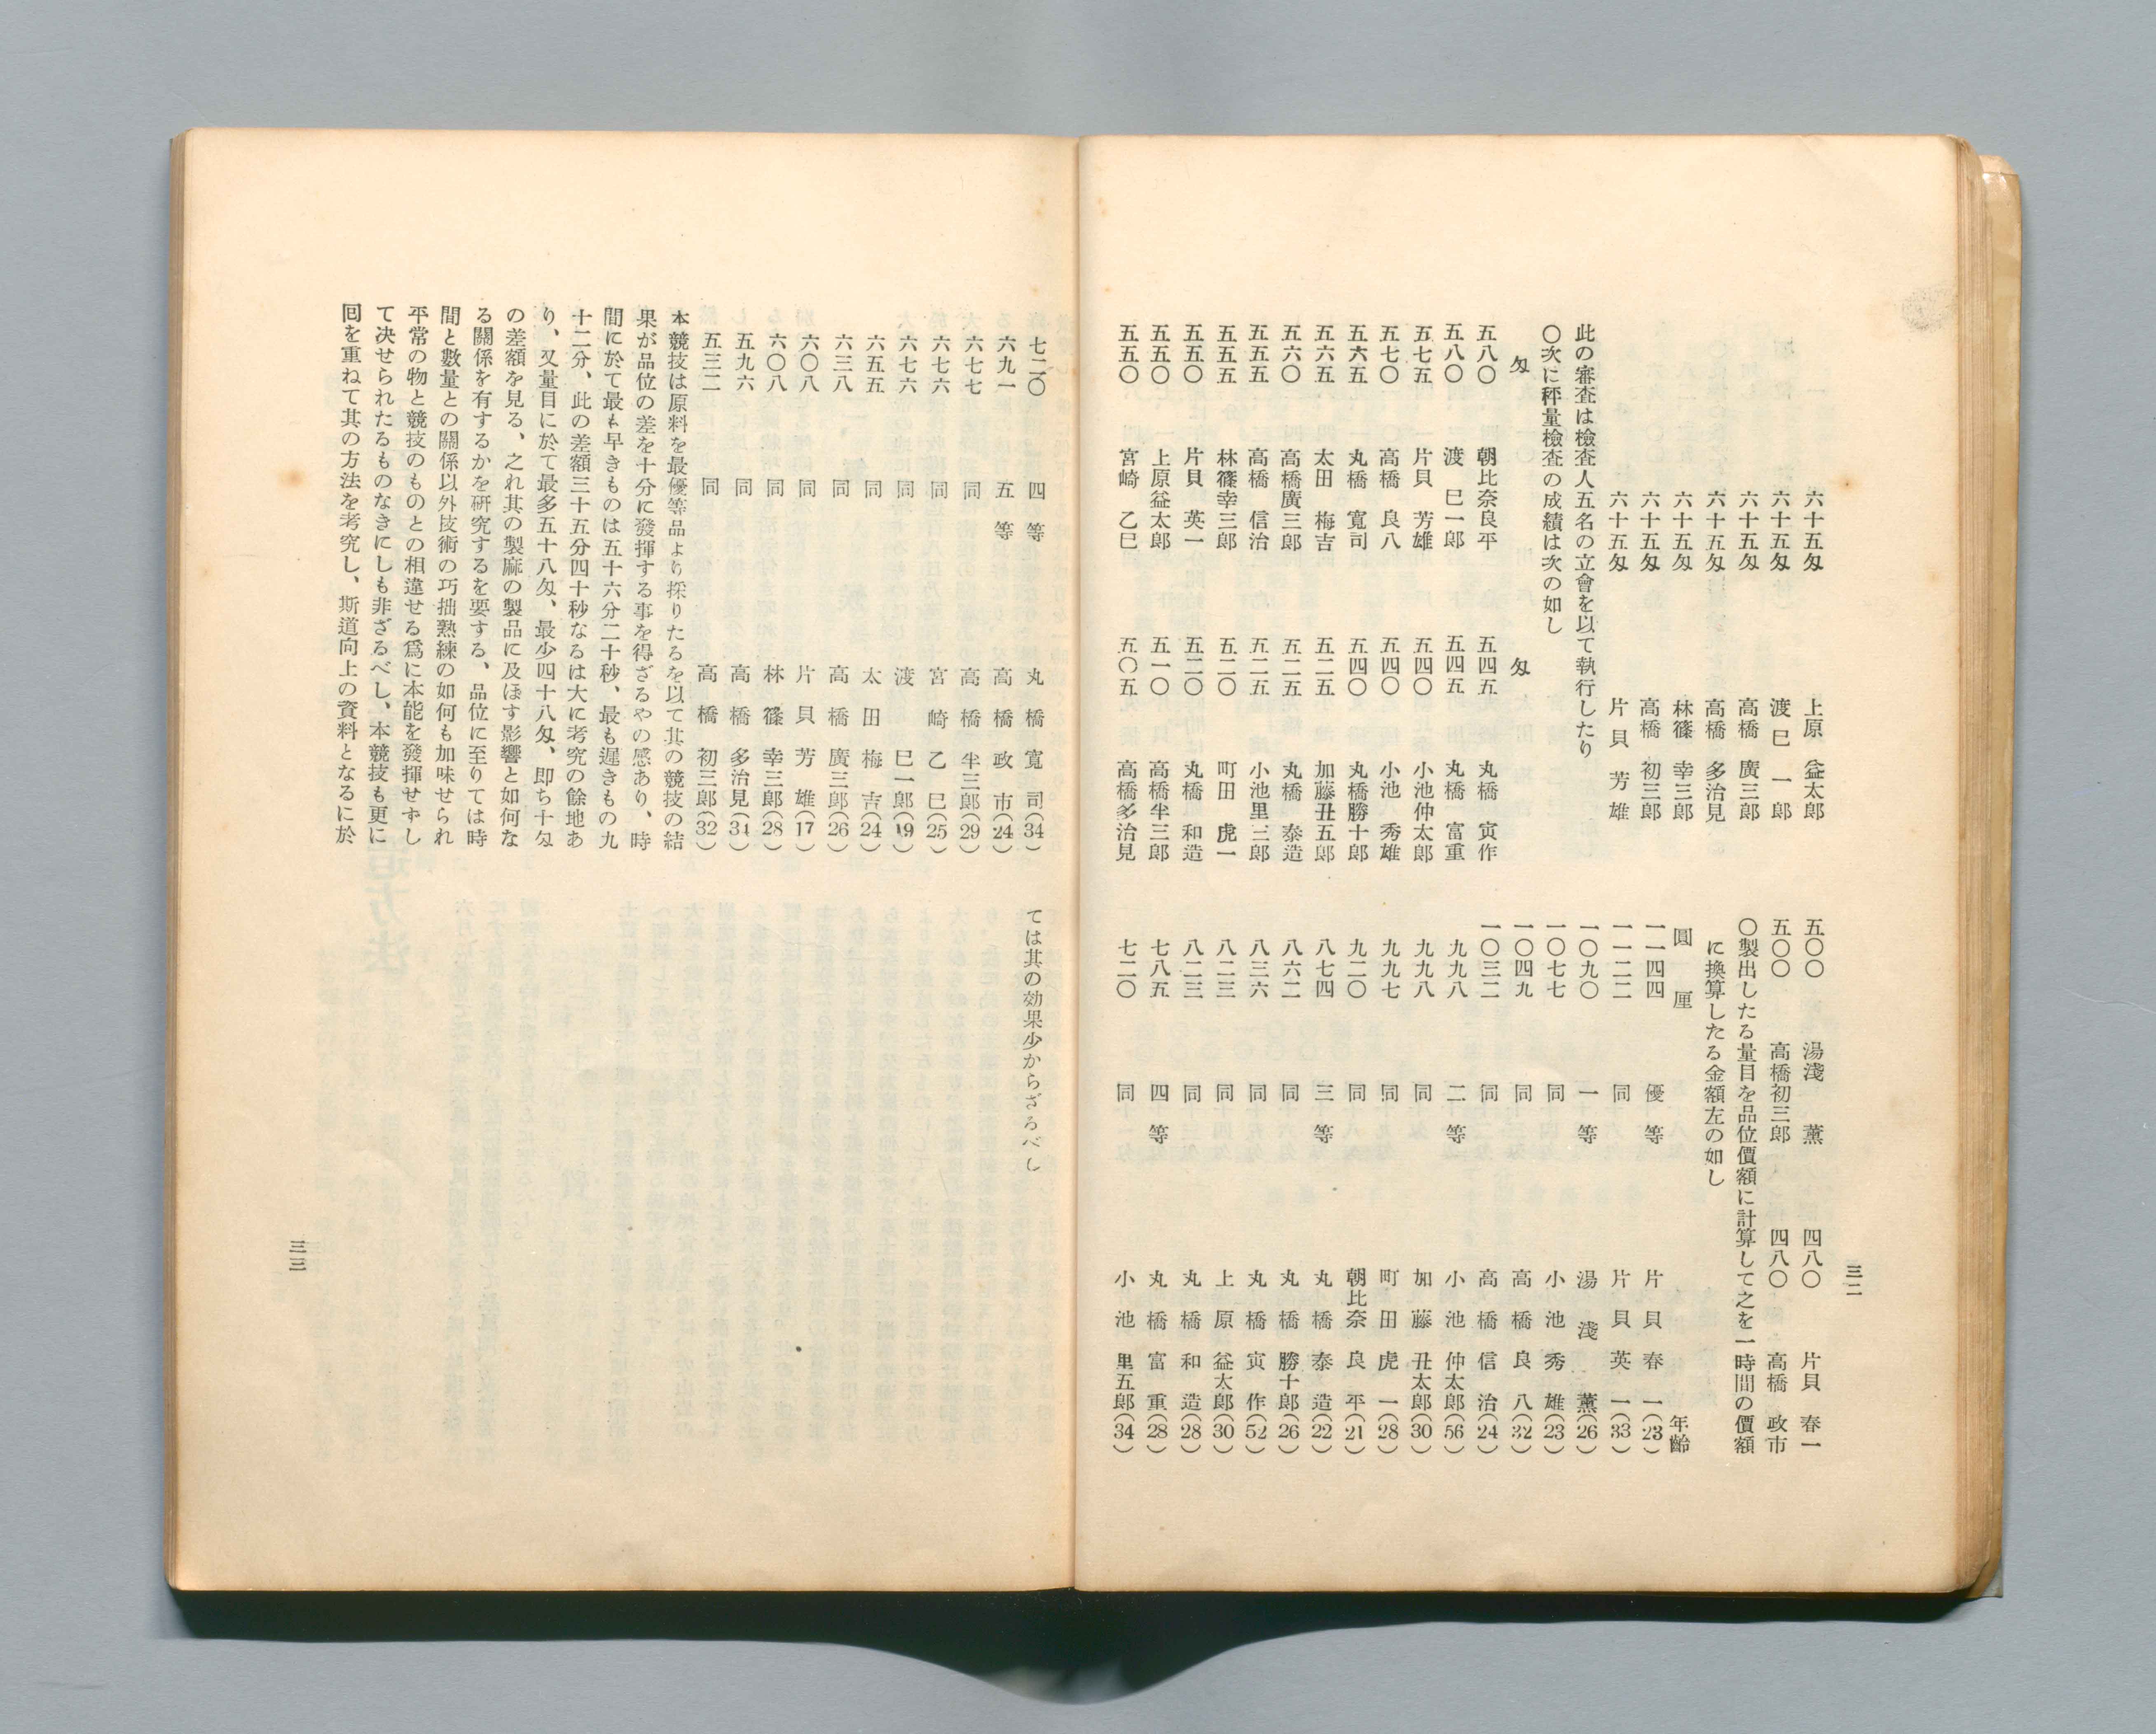 三二
六十五匁 上原 益太郎
六十五匁 渡巳 一郎
六十五匁 高橋 廣三郎
六十五匁 高橋 多治見
六十五匁 林篠 幸三郎
六十五匁 高橋 初三郎
六十五匁 片貝 芳雄
此の審査は檢査人五名の立會を以て執行したり
〇次に秤量檢査の成績は次の如し
匁 匁
五八〇 朝比奈良平 五四五 丸橋 寅作
五八〇 渡 巳一郎 五四五 丸橋 富重
五七五 片貝 芳雄 五四〇 小池仲太郎
五七〇 高橋 良八 五四〇 小池 秀雄
五六五 丸橋 寬司 五四〇 丸橋勝十郎
五六五 太田 梅吉 五二五 加藤丑五郎
五六〇 高橋廣三郎 五二五 丸橋 泰造
五五五 高橋 信治 五二五 小池里三郎
五五五 林篠幸三郎 五二〇 町田 虎一
五五〇 片貝 英一 五二〇 丸橋 和造
五五〇 上原益太郎 五一〇 高橋半三郎
五五〇 宮崎 乙巳 五〇五 高橋多治見
五〇〇 湯淺 薰 四八〇 片貝 春一
五〇〇 高橋初三郎 四八〇 高橋 政市
〇製出したる量目を品位價額に計算して之を一時間の價額
に換算したる金額左の如し
圓 厘 年齡
一二四四 優等 片貝春一(23)
一一二二 同 片貝英一(33)
一〇九〇 一等 湯淺薰(26)
一〇七七 同 小池秀雄(23)
一〇四九 同 高橋良八(32)
一〇三二 同 高橋信治(24)
九九八 二等 小池仲太郎(56)
九九八 同 加藤丑太郎(30)
九九七 同 町田虎一(28)
九二〇 同 朝比奈良平(21)
八七四 三等 丸橋泰造(22)
八六二 同 丸橋勝十郎(26)
八三六 同 丸橋寅作(52)
八二三 同 上原益太郎(30)
八二三 同 丸橋和造(28)
七八五 四等 丸橋富重(28)
七二〇 同 小池里五郎(34)
七二〇 四等 丸橋寬司(34)
六九一 五等 高橋政市(24)
六七七 同 高橋半三郎(29)
六七六 同 宮崎乙巳(25)
六七六 同 渡巳一郎(19)
六五五 同 太田梅吉(24)
六三八 同 高橋廣三郎(26)
六〇八 同 片貝芳雄(17)
六〇八 同 林篠幸三郎(28)
五九六 同 高橋多治見(31)
五三二 同 高橋初三郎(32)
本競技は原料を最優等品より採りたるを以て其の競技の結
果が品位の差を十分に發揮する事を得ざるやの感あり、時
間に於て最も早きものは五十六分二十秒、最も遲きもの九
十二分、此の差額三十五分四十秒なるは大に考究の餘地あ
り、又量目に於て最多五十八匁、最少四十八匁、卽ち十匁
の差額を見る、之れ其の製麻の製品に及ほす影響と如何な
る關係を有するかを硏究するを要する、品位に至りては時
間と數量との關係以外技術の巧拙熟練の如何も加味せられ
平常の物と競技のものとの相違せる爲に本能を發揮せずし
て決せられたるものなきにしも非ざるべし、本競技も更に
回を重ねて其の方法を考究し、斯道向上の資料となるに於
ては其の効果少からざるべし
三三